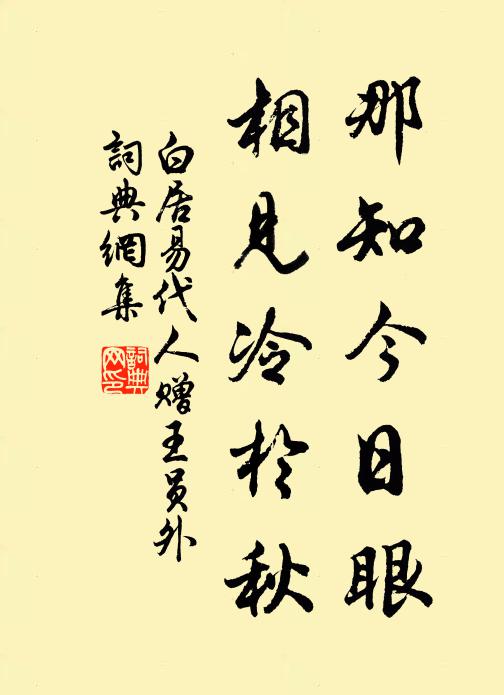 那知今日眼
相見冷於秋
白居易代人赠王員外
詞典網集
詞典网印